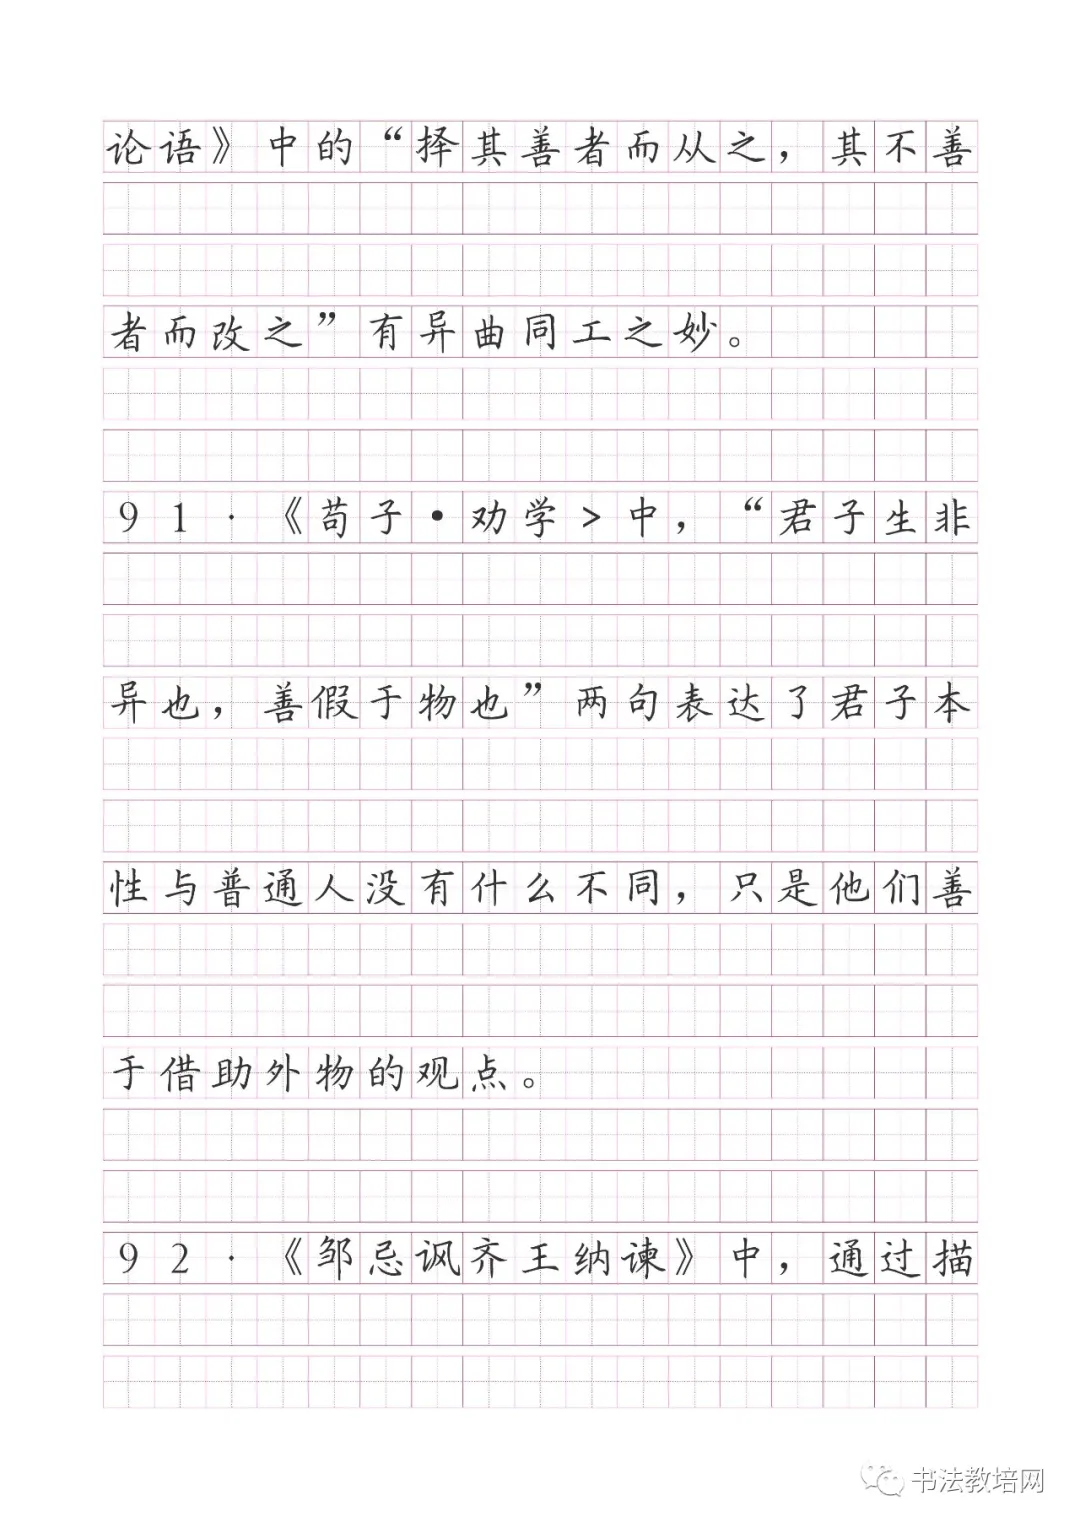 论语》中的“择其善者而从之，其不善
者而改之”有异曲同工之妙。
91.《荀子•劝学>中，“君子生非
异也，善假于物也”两句表达了君子本
性与普通人没有什么不同，只是他们善
于借助外物的观点。
92.《邹忌讽齐王纳谏》中，通过描
书法教培网